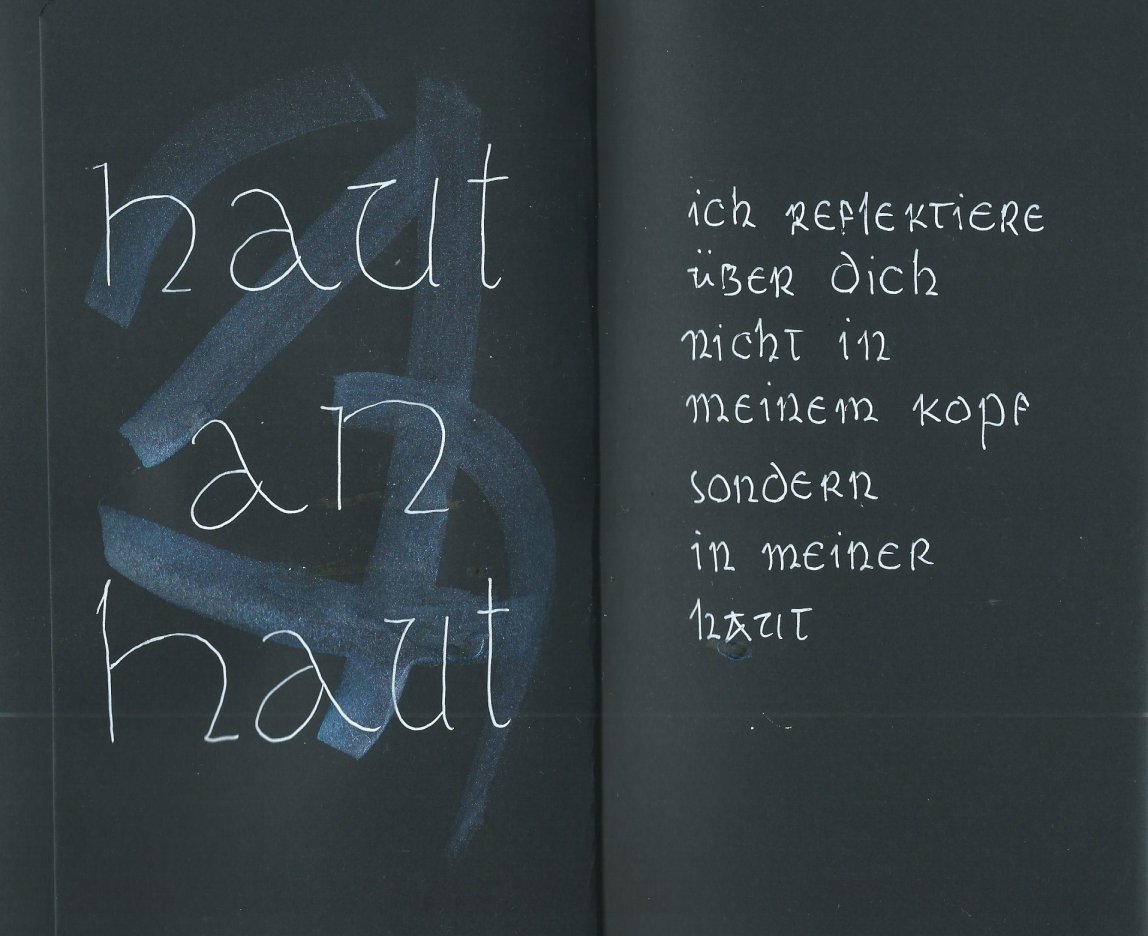 haut
an
haut
ich REFlEKTiERE
üBER dich
nichT in
mEinEm KopF
sondERn
in mEinER
hAuT